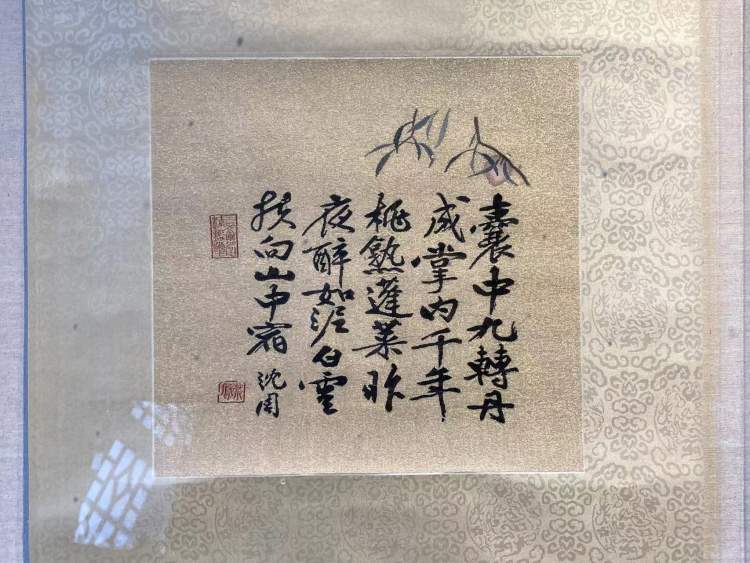 囊中九轉丹
成掌內千年
桃熟蓬萊昨
夜醉如泥白雲
扶向山中宿 沈周